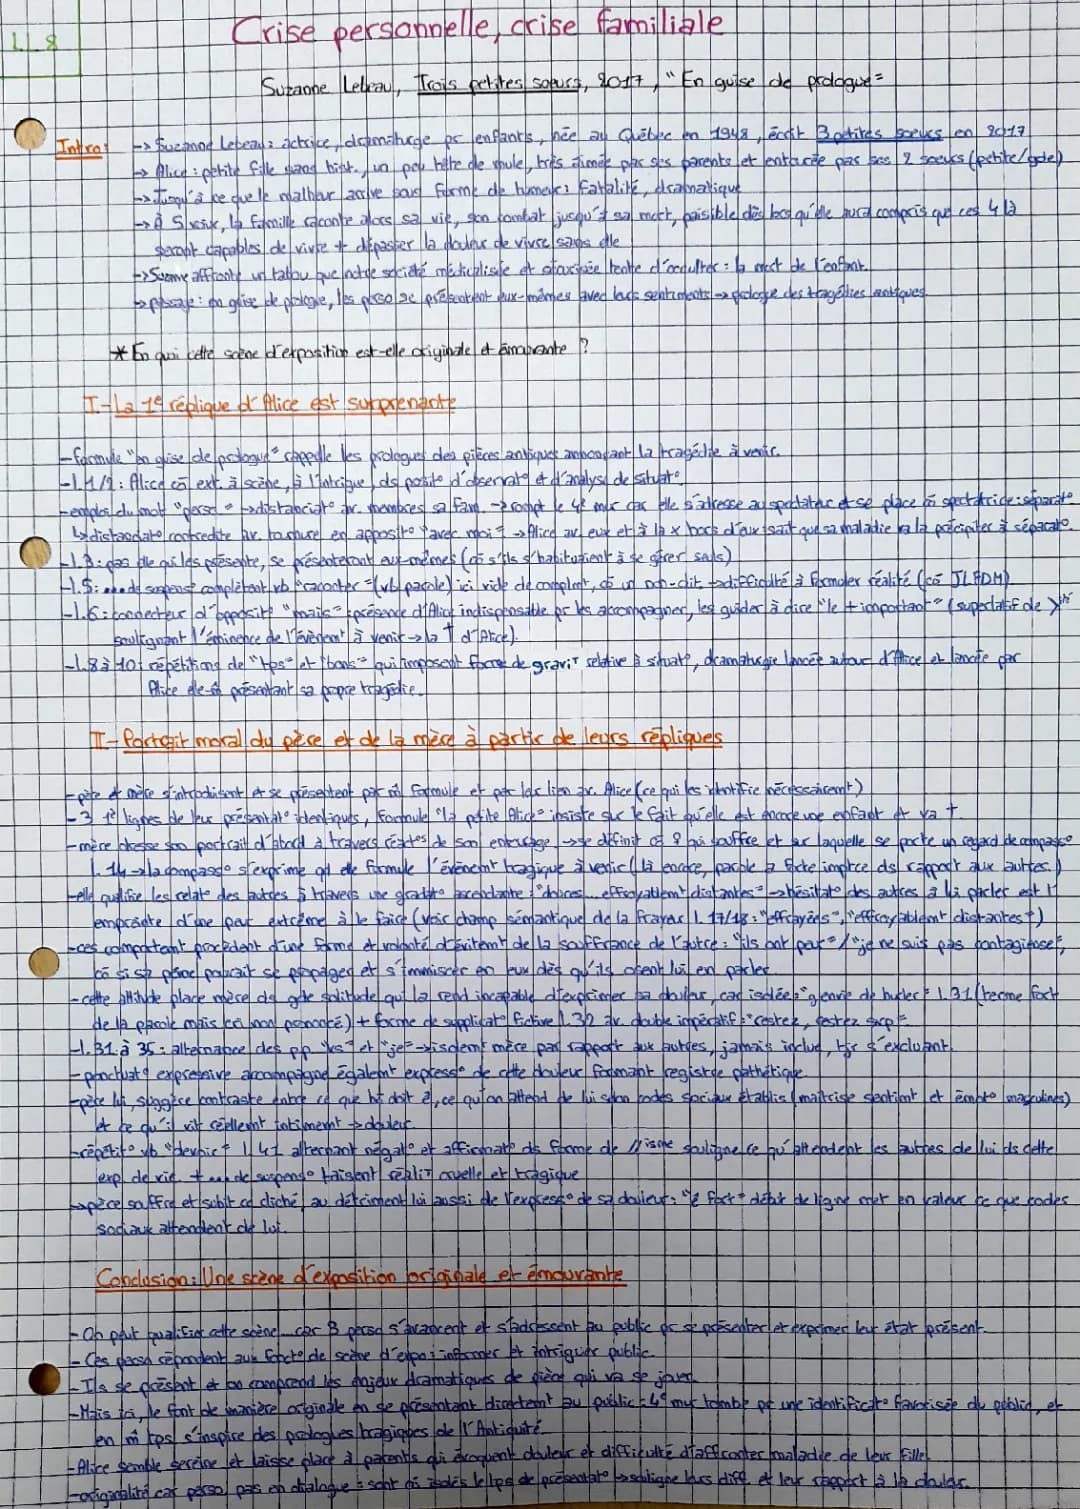 LL8
Crise personnelle, crise familiale
Suzanne Lebeau, Trois petites soeurs, 2017, "En guise de prologue"
Intro: -> Suzanne Lebeau: actrice, dramaturge pr enfants, née au Québec en 1948, écrit 3 petites soeurs en 2017
-> Alice: petite fille sans hist., un peu tête de mule, très aimée par ses parents et entourée par ses 2 soeurs (petite/gde)
-> Jusqu'à ce que le malheur arrive sous forme de tumeur: fatalité, dramatique
-> À 5 voix, la famille raconte alors sa vie, son combat jusqu'à sa mort, paisible dès lors qu'elle aura compris que ces 4 là
seront capables de vivre + dépasser la douleur de vivre sans elle
-> Suzanne affronte un tabou que notre société médicalisée et tente d'occulter: la mort de l'enfant.
-> passage: en guise de prologue, les perso se présentent eux-mêmes avec leurs sentiments -> prologue des tragédies antiques
* En quoi cette scène d'exposition est-elle originale et émouvante ?
I- La 1e réplique d'Alice est surprenante
-formule "en guise de prologue" rappelle les prologues des pièces antiques annonçant la tragédie à venir.
-l.1/2: Alice cō ext. à scène, à l'intrigue, ds posit° d'observat° et d'analyse de situat°
-emploi du mot "perso" -> distanciat° av. membres sa fam. -> rompt le 4e mur car elle s'adresse au spectateur et se place en spectatrice: séparat°
↳ distanciat° contredite av. tournure en apposit° "avec moi" -> Alice av. eux et à la x hors d'eux sait que sa maladie va la précipiter à séparat°
-l.3: pas elle qui les présente, se présenteront eux-mêmes (cō s'ils s'habituaient à se gérer seuls)
-l.5: de suspens complétant vb "raconter" (vb parole) ici vide de complmt, cō un non-dit -> difficulté à formuler réalité (cō JLFDM)
-l.6: connecteur d'opposit° "mais": présence d'Alice indispensable pr les accompagner, les guider à dire "le + important" (superlatif de
soulignant l'éminence de l'évènemt à venir -> la † d'Alice).
-l.8 à 10: répétitions de "tps" et "bons" qui imposent forme de gravité relative à situat°, dramaturgie lancée autour d'Alice et lancée par
Alice elle-m̂ présentant sa propre tragédie.
II- Portrait moral du père et de la mère à partir de leurs répliques
-père et mère s'introduisent et se présentent par m̂ formule et par leur lien av. Alice (ce qui les identifie nécessairemt)
-3 1e lignes de leur présentat° identiques, formule "la petite Alice" insiste sur le fait qu'elle est encore une enfant et va †
-mère dresse son portrait d'abord à travers de son entourage -> se définit cō qui souffre et sur laquelle se porte un regard de compass°
l.14 -> la compass° s'exprime qd elle formule l'évènemt tragique à venir (là encore, parole a forte imptce ds rapport aux autres.)
-elle qualifie les relat° des autres à travers une gradat° ascendante: "drôles... effroyablemt distantes" -> hésitat° des autres à lui parler est
empreinte d'une peur extrême à le faire (voir champ sémantique de la frayeur l.17/18: "effrayées", "effroyablemt distantes")
-ces comportemt procèdent d'une forme et volonté d'évitemt de la souffrance de l'autre: "ils ont peur"/"je ne suis pas contagieuse",
cō si sa peine pouvait se propager et s'immiscer en eux dès qu'ils osent lui en parler.
-cette attitude place mère ds gde solitude qui la rend incapable d'exprimer sa douleur, car isolée: "j'ai envie de hurler" l.31 (terme fort
de la parole mais non prononcé) + forme de supplicat° fictive l.32 av. double impératif: "restez, restez svp"
-l.31 à 35: alternance des pp. "vs" et "je" -> isolemt mère par rapport aux autres, jamais inclus, tjr s'excluant.
-ponctuat° expressive accompagne égalemt express° de cette douleur formant registre pathétique.
-père lui, suggère contraste entre ce que lui doit ê, ce qu'on attend de lui selon codes sociaux établis (maîtrise sentimt et émot° masculines)
et ce qu'il vit réellemt intimemt -> douleur.
-répétit° vb "devoir" l.41 alternant négat° et affirmat° ds forme de //isme souligne ce qu'attendent les autres de lui ds cette
exp. de vie, + de suspens° taisent réalité cruelle et tragique
-> père souffre et subit ce cliché, au détrimemt lui aussi de l'express° de sa douleur: "e fort" début de ligne met en valeur ce que codes
sociaux attendent de lui.
Conclusion: Une scène d'exposition originale et émouvante
-On peut qualifier cette scène... car 3 perso s'avancent et s'adressent au public pr se présenter et exprimer leur état présent.
-Ces perso répondent aux fonct° de scène d'expo: informer et intriguer public.
-Ils se présent et on comprend les enjeux dramatiques de pièce qui va se jouer
-Mais ici, le font de manière originale en se présentant directemt au public: 4e mur tombe pr une identificat° favorisée du public, et
en m̂ tps s'inspire des prologues tragiques de l'Antiquité.
-Alice semble sereine et laisse place à parents qui évoquent douleur et difficulté d'affronter maladie de leur fille.
-originalité car perso pas en dialogue: sont isolés le tps de présentat° -> souligne leurs diff. et leur rapport à la douleur.